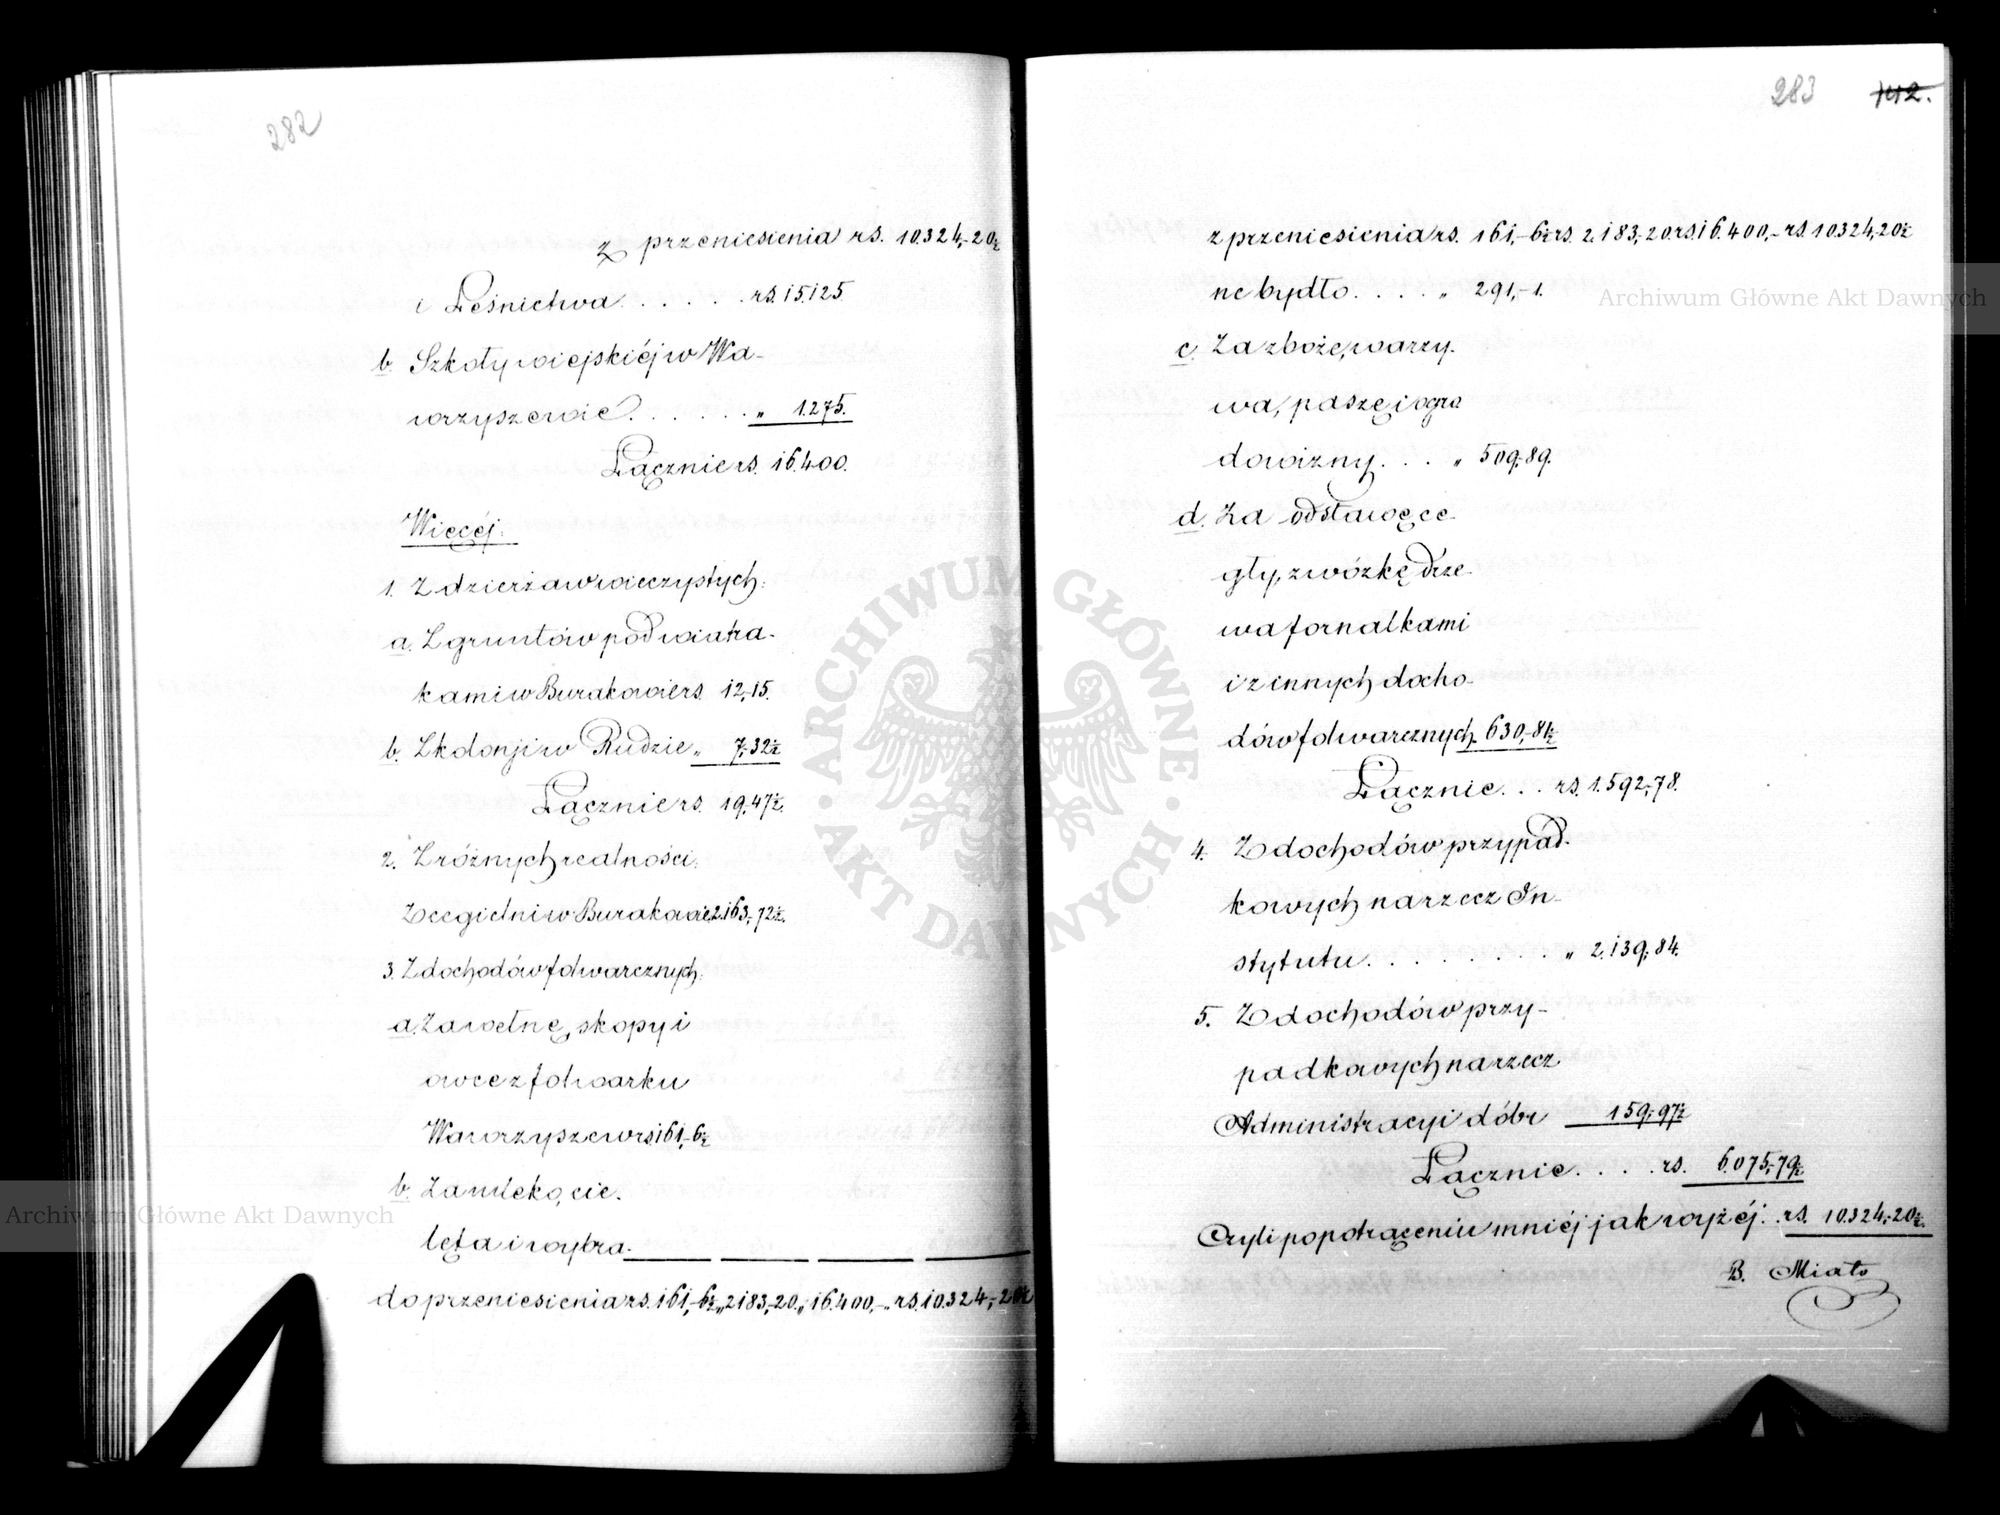 282
Z przeniesienia rs. 10.324,-20½
i Leśnictwa . . . . . . rs. 15.125.
b. Szkoły wiejskiéj w Wa-
wrzyszewie . . . . . . „ 1.275.
Łącznie rs. 16.400.
Więcéj:
1. Z dzierżaw wieczystych:
a. Z gruntów pod wiatra-
kami w Burakowie rs. 12,-15.
b. Z kolonji w Rudzie „ 7,-32½
Łącznie rs. 19,-47½.
2. Z różnych realności:
Z cegielni w Burakowie 2.163,-72½.
3. Z dochodów folwarcznych:
a. Za wełnę, skopy i
owce z folwarku
Wawrzyszew rs. 161,-6½
b. Za mleko, cie-
lęta i wybra-
do przeniesienia rs. 161,-6½ „ 2183,-20. „ 16.400,- „ rs. 10.324,-20½
283 142.
z przeniesienia rs. 161,-6½ rs. 2.183,-20 rs. 16.400,- rs. 10324,-20½
ne bydło . . . . „ 291,-1.
c. Za zboże, warzy-
wa, paszę i ogro
dowizny . . . „ 509,-89.
d. Za odstawę ce-
gły, zwózkę drze-
wa fornalkami
i z innych docho-
dów folwarcznych 630,-81½
Łącznie . . . rs. 1.592,-78.
4. Z dochodów przypad-
kowych na rzecz In-
stytutu . . . . . . . . . „ 2.139,-84.
5. Z dochodów przy-
padkowych na rzecz
Administracyi dóbr 159,-97½
Łącznie . . . . rs. 6.075,-79½
Czyli po potrąceniu mniéj jak wyżéj . rs. 10.324,-20½.
B. Miało
Archiwum Główne Akt Dawnych
Archiwum Główne Akt Dawnych
ARCHIWUM GŁÓWNE · AKT DAWNYCH ·